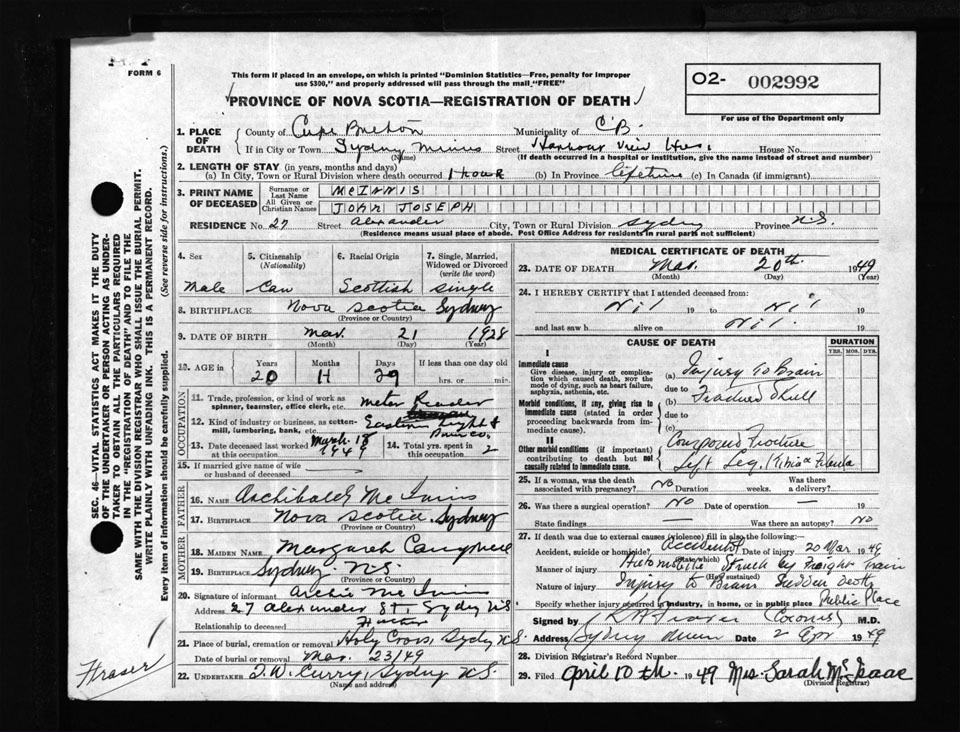 FORM 6
This form if placed in an envelope, on which is printed "Dominion Statistics—Free, penalty for improper
use $300," and properly addressed will pass through the mail "FREE"
PROVINCE OF NOVA SCOTIA—REGISTRATION OF DEATH
O2- 002992
For use of the Department only
SEC. 46—VITAL STATISTICS ACT MAKES IT THE DUTY
OF THE UNDERTAKER OR PERSON ACTING AS UNDER-
TAKER TO OBTAIN ALL THE PARTICULARS REQUIRED
IN THE "REGISTRATION OF DEATH" AND TO FILE THE
SAME WITH THE DIVISION REGISTRAR WHO SHALL ISSUE THE BURIAL PERMIT.
WRITE PLAINLY WITH UNFADING INK. THIS IS A PERMANENT RECORD.
Every item of information should be carefully supplied. (See reverse side for instructions.)
1. PLACE OF DEATH
County of Cape Breton Municipality of C'B.
If in City or Town Sydney Mines Street Harbour View Hos. House No.
(Name) (If death occurred in a hospital or institution, give the name instead of street and number)
2. LENGTH OF STAY (in years, months and days)
(a) In City, Town or Rural Division where death occurred 1 hour (b) In Province lifetime (c) In Canada (if immigrant)
3. PRINT NAME OF DECEASED
Surname or Last Name McINNIS
All Given or Christian Names JOHN JOSEPH
RESIDENCE No. 27 Street Alexander City, Town or Rural Division Sydney Province N.S.
(Residence means usual place of abode. Post Office Address for residents in rural parts not sufficient)
4. Sex Male
5. Citizenship (Nationality) Can
6. Racial Origin Scottish
7. Single, Married, Widowed or Divorced (write the word) Single
8. BIRTHPLACE Nova Scotia Sydney
(Province or Country)
9. DATE OF BIRTH Mar. 21 1928
(Month) (Day) (Year)
10. AGE in Years 20 Months 11 Days 29 If less than one day old
hrs. or min.
OCCUPATION
11. Trade, profession, or kind of work as
spinner, teamster, office clerk, etc. Meter Reader
12. Kind of industry or business, as cotten-
mill, lumbering, bank, etc. Eastern Light & Power Co.
13. Date deceased last worked at this occupation March 18 1949
14. Total yrs. spent in this occupation 2
15. If married give name of wife
or husband of deceased
FATHER
16. NAME Archibald McInnis
17. BIRTHPLACE Nova Scotia, Sydney
(Province or Country)
MOTHER
18. MAIDEN NAME Margaret Campbell
19. BIRTHPLACE Sydney N.S.
(Province or Country)
20. Signature of informant Archie McInnis
Address 27 Alexander St, Sydney NS
Relationship to deceased Father
21. Place of burial, cremation or removal Holy Cross, Sydney N.S.
Date of burial or removal Mar. 23/49
22. UNDERTAKER T.W. Curry, Sydney N.S.
(Name and address)
Fraser
MEDICAL CERTIFICATE OF DEATH
23. DATE OF DEATH Mar. 20th. 1949
(Month) (Day) (Year)
24. I HEREBY CERTIFY that I attended deceased from:
Nil 19 to Nil 19
and last saw h alive on Nil. 19
CAUSE OF DEATH
DURATION
YRS. MOS. DYS.
I
Immediate cause
Give disease, injury or complica-
tion which caused death, NOT the
mode of dying, such as heart failure,
asphyxia, asthenia, etc.
(a) Injury to Brain
due to
Morbid conditions, if any, giving rise to
immediate cause (stated in order
proceeding backwards from im-
mediate cause).
(b) Fractured Skull
due to
(c)
II
Other morbid conditions (if important)
contributing to death but not
causally related to immediate cause.
Compound Fracture
Left Leg. (Tibia & Fibula
25. If a woman, was the death
associated with pregnancy? NO Duration weeks. Was there
a delivery?
26. Was there a surgical operation? NO Date of operation — 19
State findings — Was there an autopsy? NO
27. If death was due to external causes (violence) fill in also the following:
Accident, suicide or homicide? Accidental Date of injury 20 Mar 1949
(State which)
Manner of injury Automobile struck by freight train
(How sustained)
Nature of injury Injury to Brain Sudden death
Specify whether injury occurred in industry, in home, or in public place Public Place
Signed by Fraser (Coroner) M.D.
Address Sydney Mines Date 2 Apr 1949
28. Division Registrar's Record Number
29. Filed April 10th. 1949 Mrs. Sarah McIsaac
(Division Registrar)